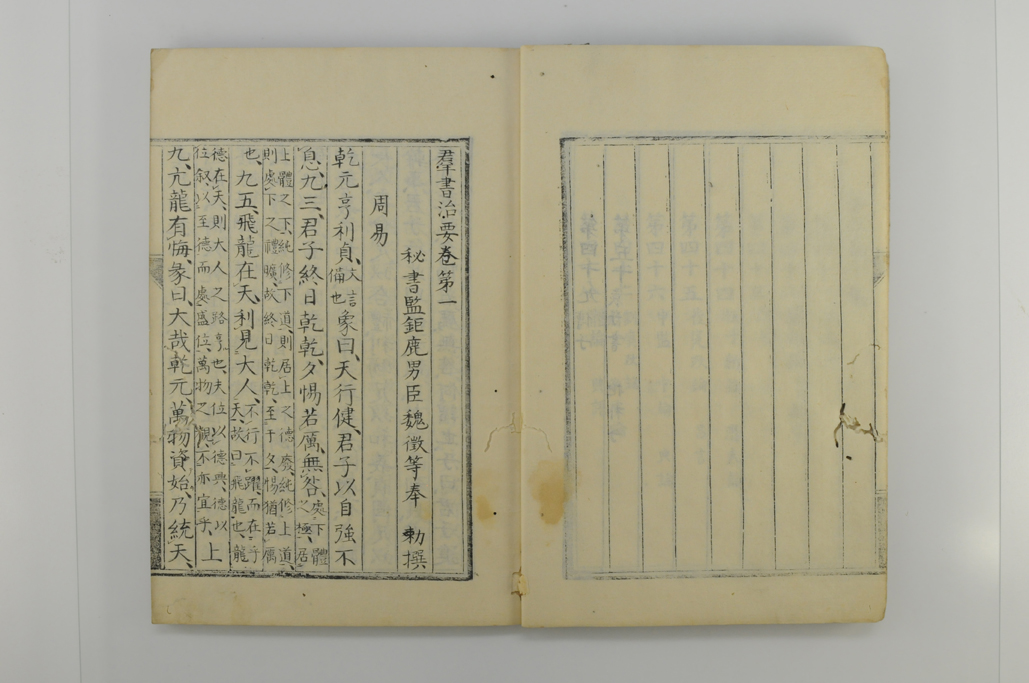 羣書治要卷第一
秘書監鉅鹿男臣魏徵等奉 勅撰
周易
乾元亨利貞、文言備也象曰、天行健、君子以自強不
息、九三、君子終日乾乾、夕惕若厲、無咎、處下體之極、居
上體之下、純修下道、則居上之德廢、純修上道、
則處下之禮曠、故終日乾乾、至于夕惕猶若厲
也、九五、飛龍在天、利見大人、不行不躍、而在乎天、故曰飛龍也、龍
德在天、則大人之路亨也、夫位以德興、德以
位叙、以至德而處盛位、萬物之覩、不亦宜乎、上
九、亢龍有悔、彖曰、大哉乾元、萬物資始、乃統天、